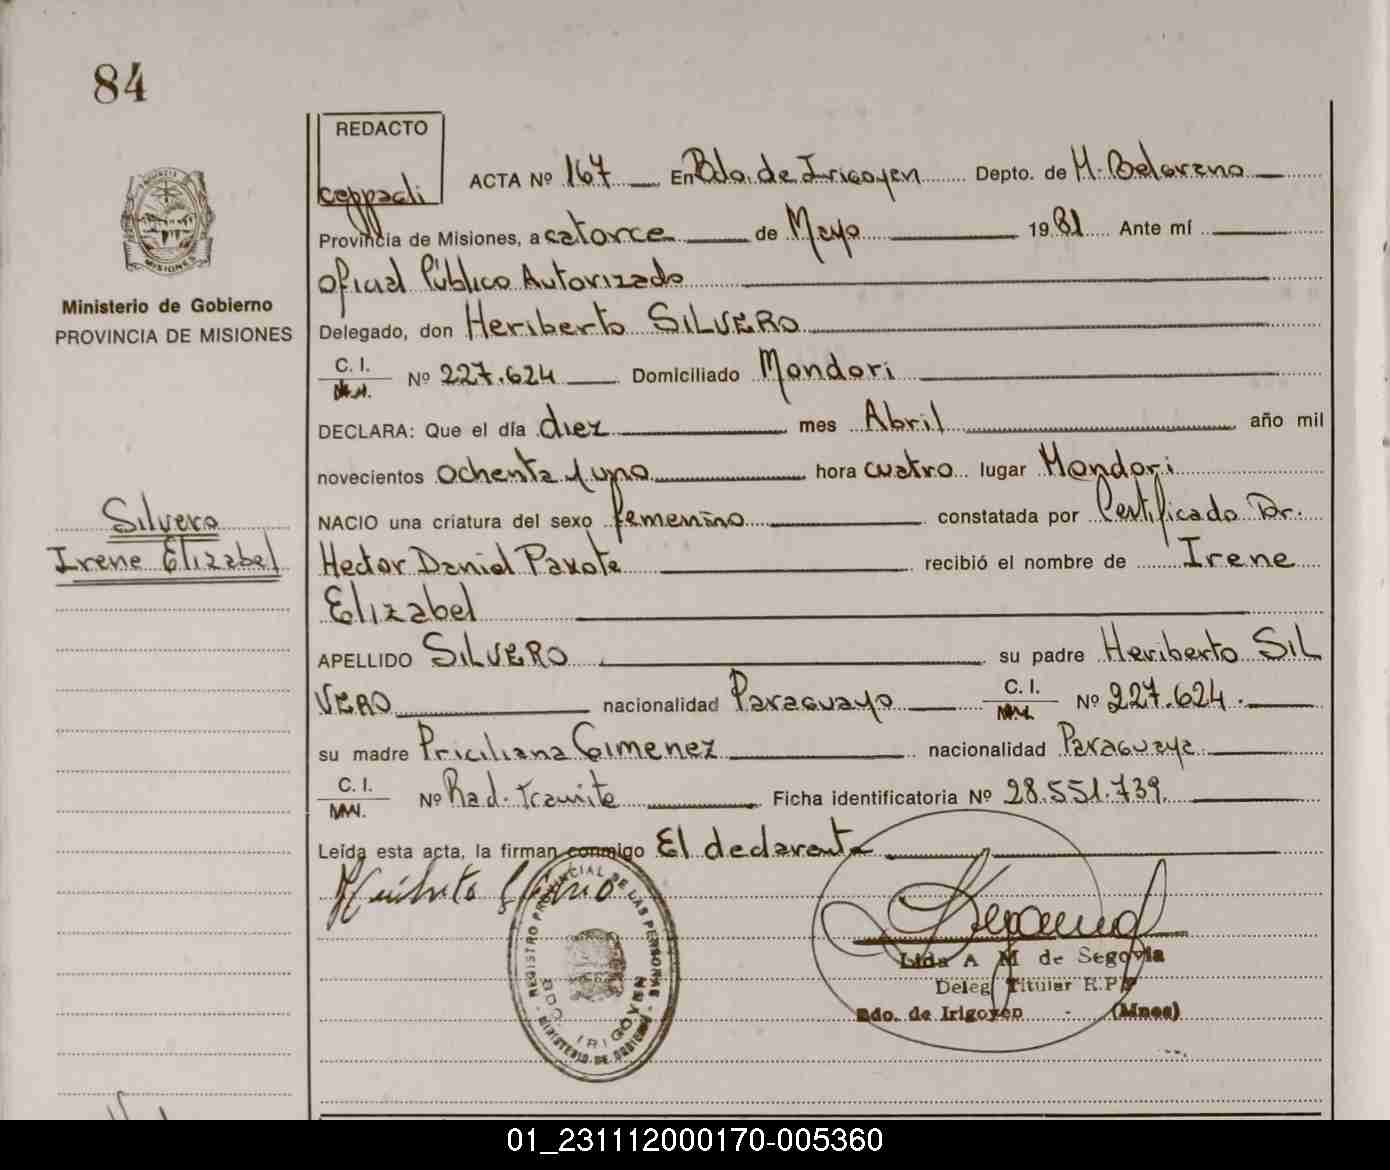 84
REDACTO
ceppacli
ACTA Nº 167 En Bdo. de Irigoyen Depto. de M. Belgrano
Provincia de Misiones, a catorce de Mayo 1981 Ante mí
Oficial Público Autorizado
Delegado, don Heriberto SILVERO
C. I. Nº 227.624 Domiciliado Mondori
DECLARA: Que el día diez mes Abril año mil
novecientos ochenta y uno hora cuatro lugar Mondori
NACIO una criatura del sexo femenino constatada por Certificado Dr.
Hector Daniel Paxote recibió el nombre de Irene
Elizabel
APELLIDO SILVERO su padre Heriberto SIL
VERO nacionalidad Paraguayo C. I. Nº 227.624.
su madre Priciliana Gimenez nacionalidad Paraguaya
C. I. Nº Rad. Tramite Ficha identificatoria Nº 28.551.739
Leída esta acta, la firman conmigo El declarente
Heriberto Silvero
REGISTRO PROVINCIAL DE LAS PERSONAS
BDO. IRIGOYEN
MINISTERIO DE GOBIERNO
Lida A M de Segovia
Deleg Titular R.P.P
Bdo. de Irigoyen - (Mnes)
PROVINCIA DE
MISIONES
Ministerio de Gobierno
PROVINCIA DE MISIONES
Silvero
Irene Elizabel
01_231112000170-005360